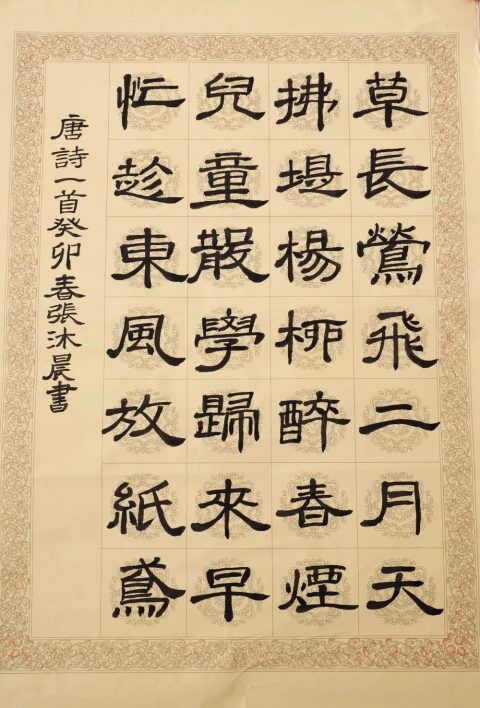 草長鶯飛二月天
拂堤楊柳醉春煙
兒童散學歸來早
忙趁東風放紙鳶
唐詩一首癸卯春張沐晨書